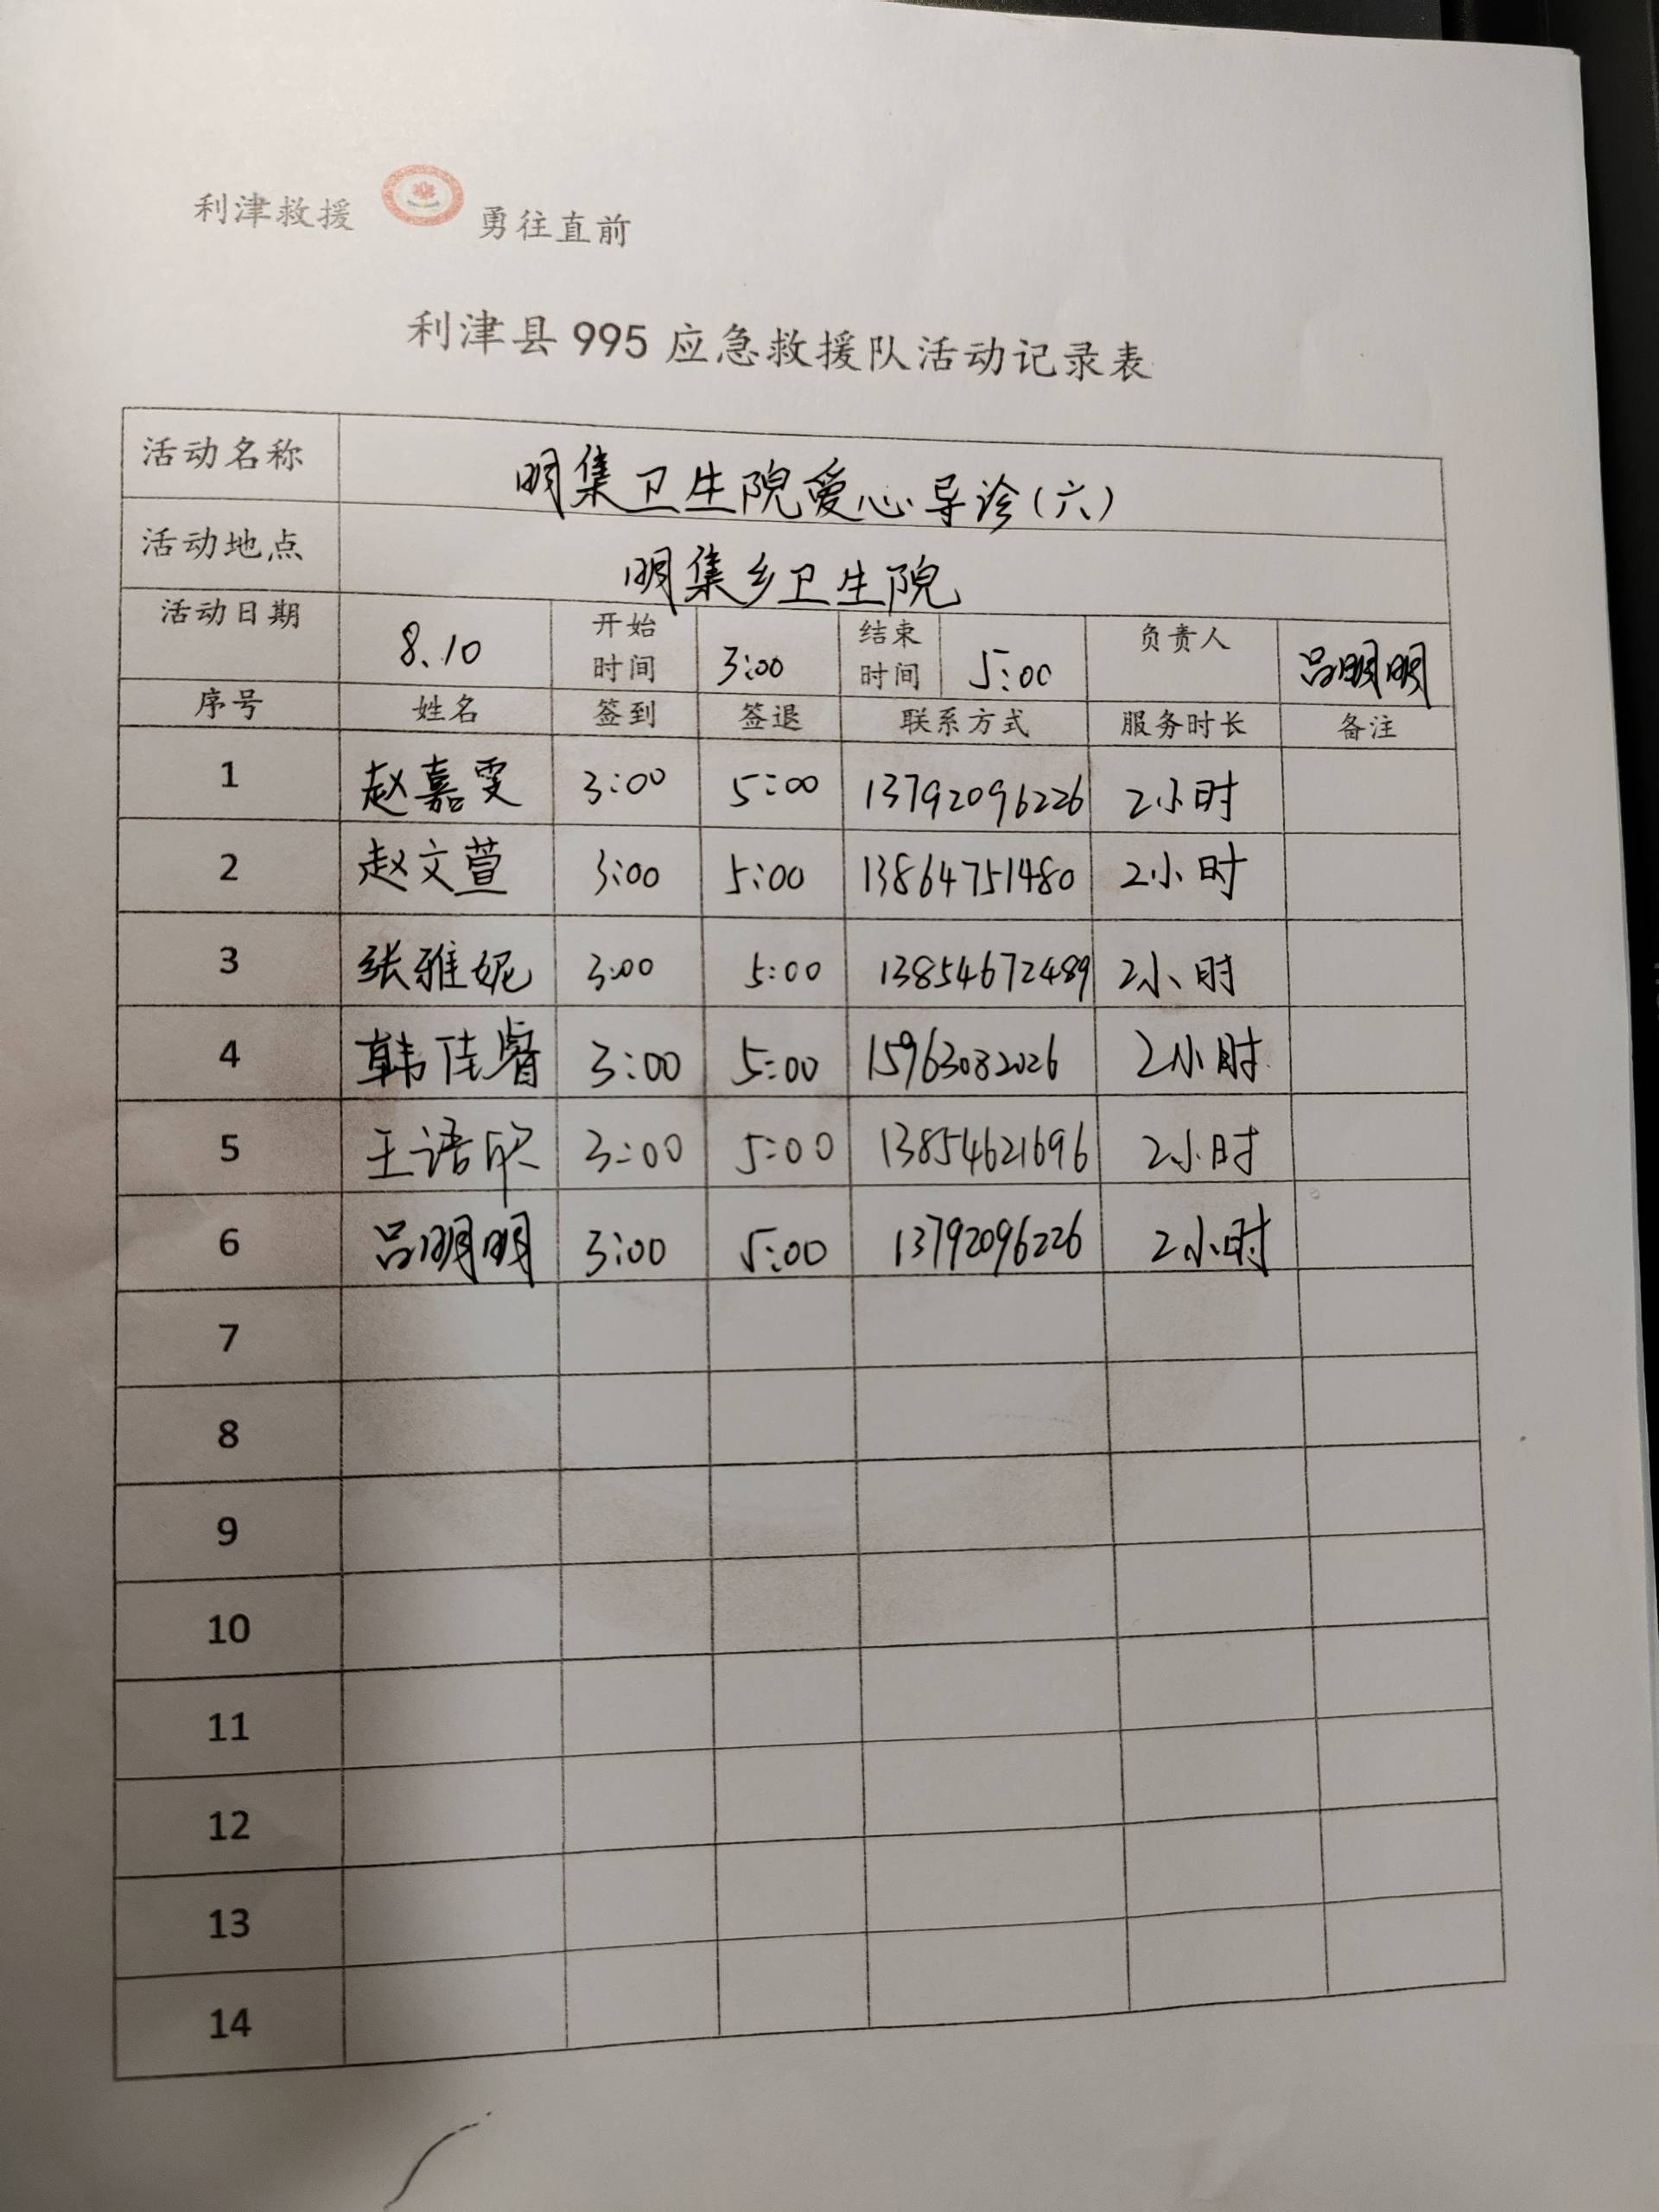 利津救援 勇往直前
利津县 995 应急救援队活动记录表
活动名称 明集卫生院爱心导诊(六)
活动地点 明集乡卫生院
活动日期 8.10 开始时间 3:00 结束时间 5:00 负责人 吕明明
序号 姓名 签到 签退 联系方式 服务时长 备注
1 赵嘉雯 3:00 5:00 13792096226 2小时
2 赵文萱 3:00 5:00 13864751480 2小时
3 张雅妮 3:00 5:00 13854672489 2小时
4 韩佳睿 3:00 5:00 15963082026 2小时
5 王语欣 3:00 5:00 13854621696 2小时
6 吕明明 3:00 5:00 13792096226 2小时
7
8
9
10
11
12
13
14